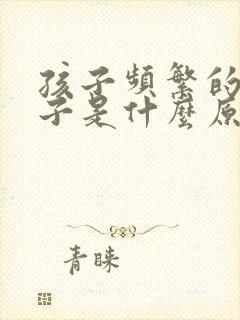 孩子頻繁的
子是什麼原
青睞